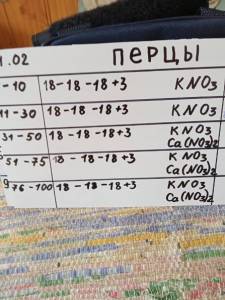 1.02 ПЕРЦЫ
-10 18-18-18+3 KNO3
11-30 18-18-18+3 KNO3
31-50 18-18-18+3 KNO3
Ca(NO3)2
51-75 18-18-18+3 KNO3
Ca(NO3)2
76-100 18-18-18+3 KNO3
Ca(NO3)2